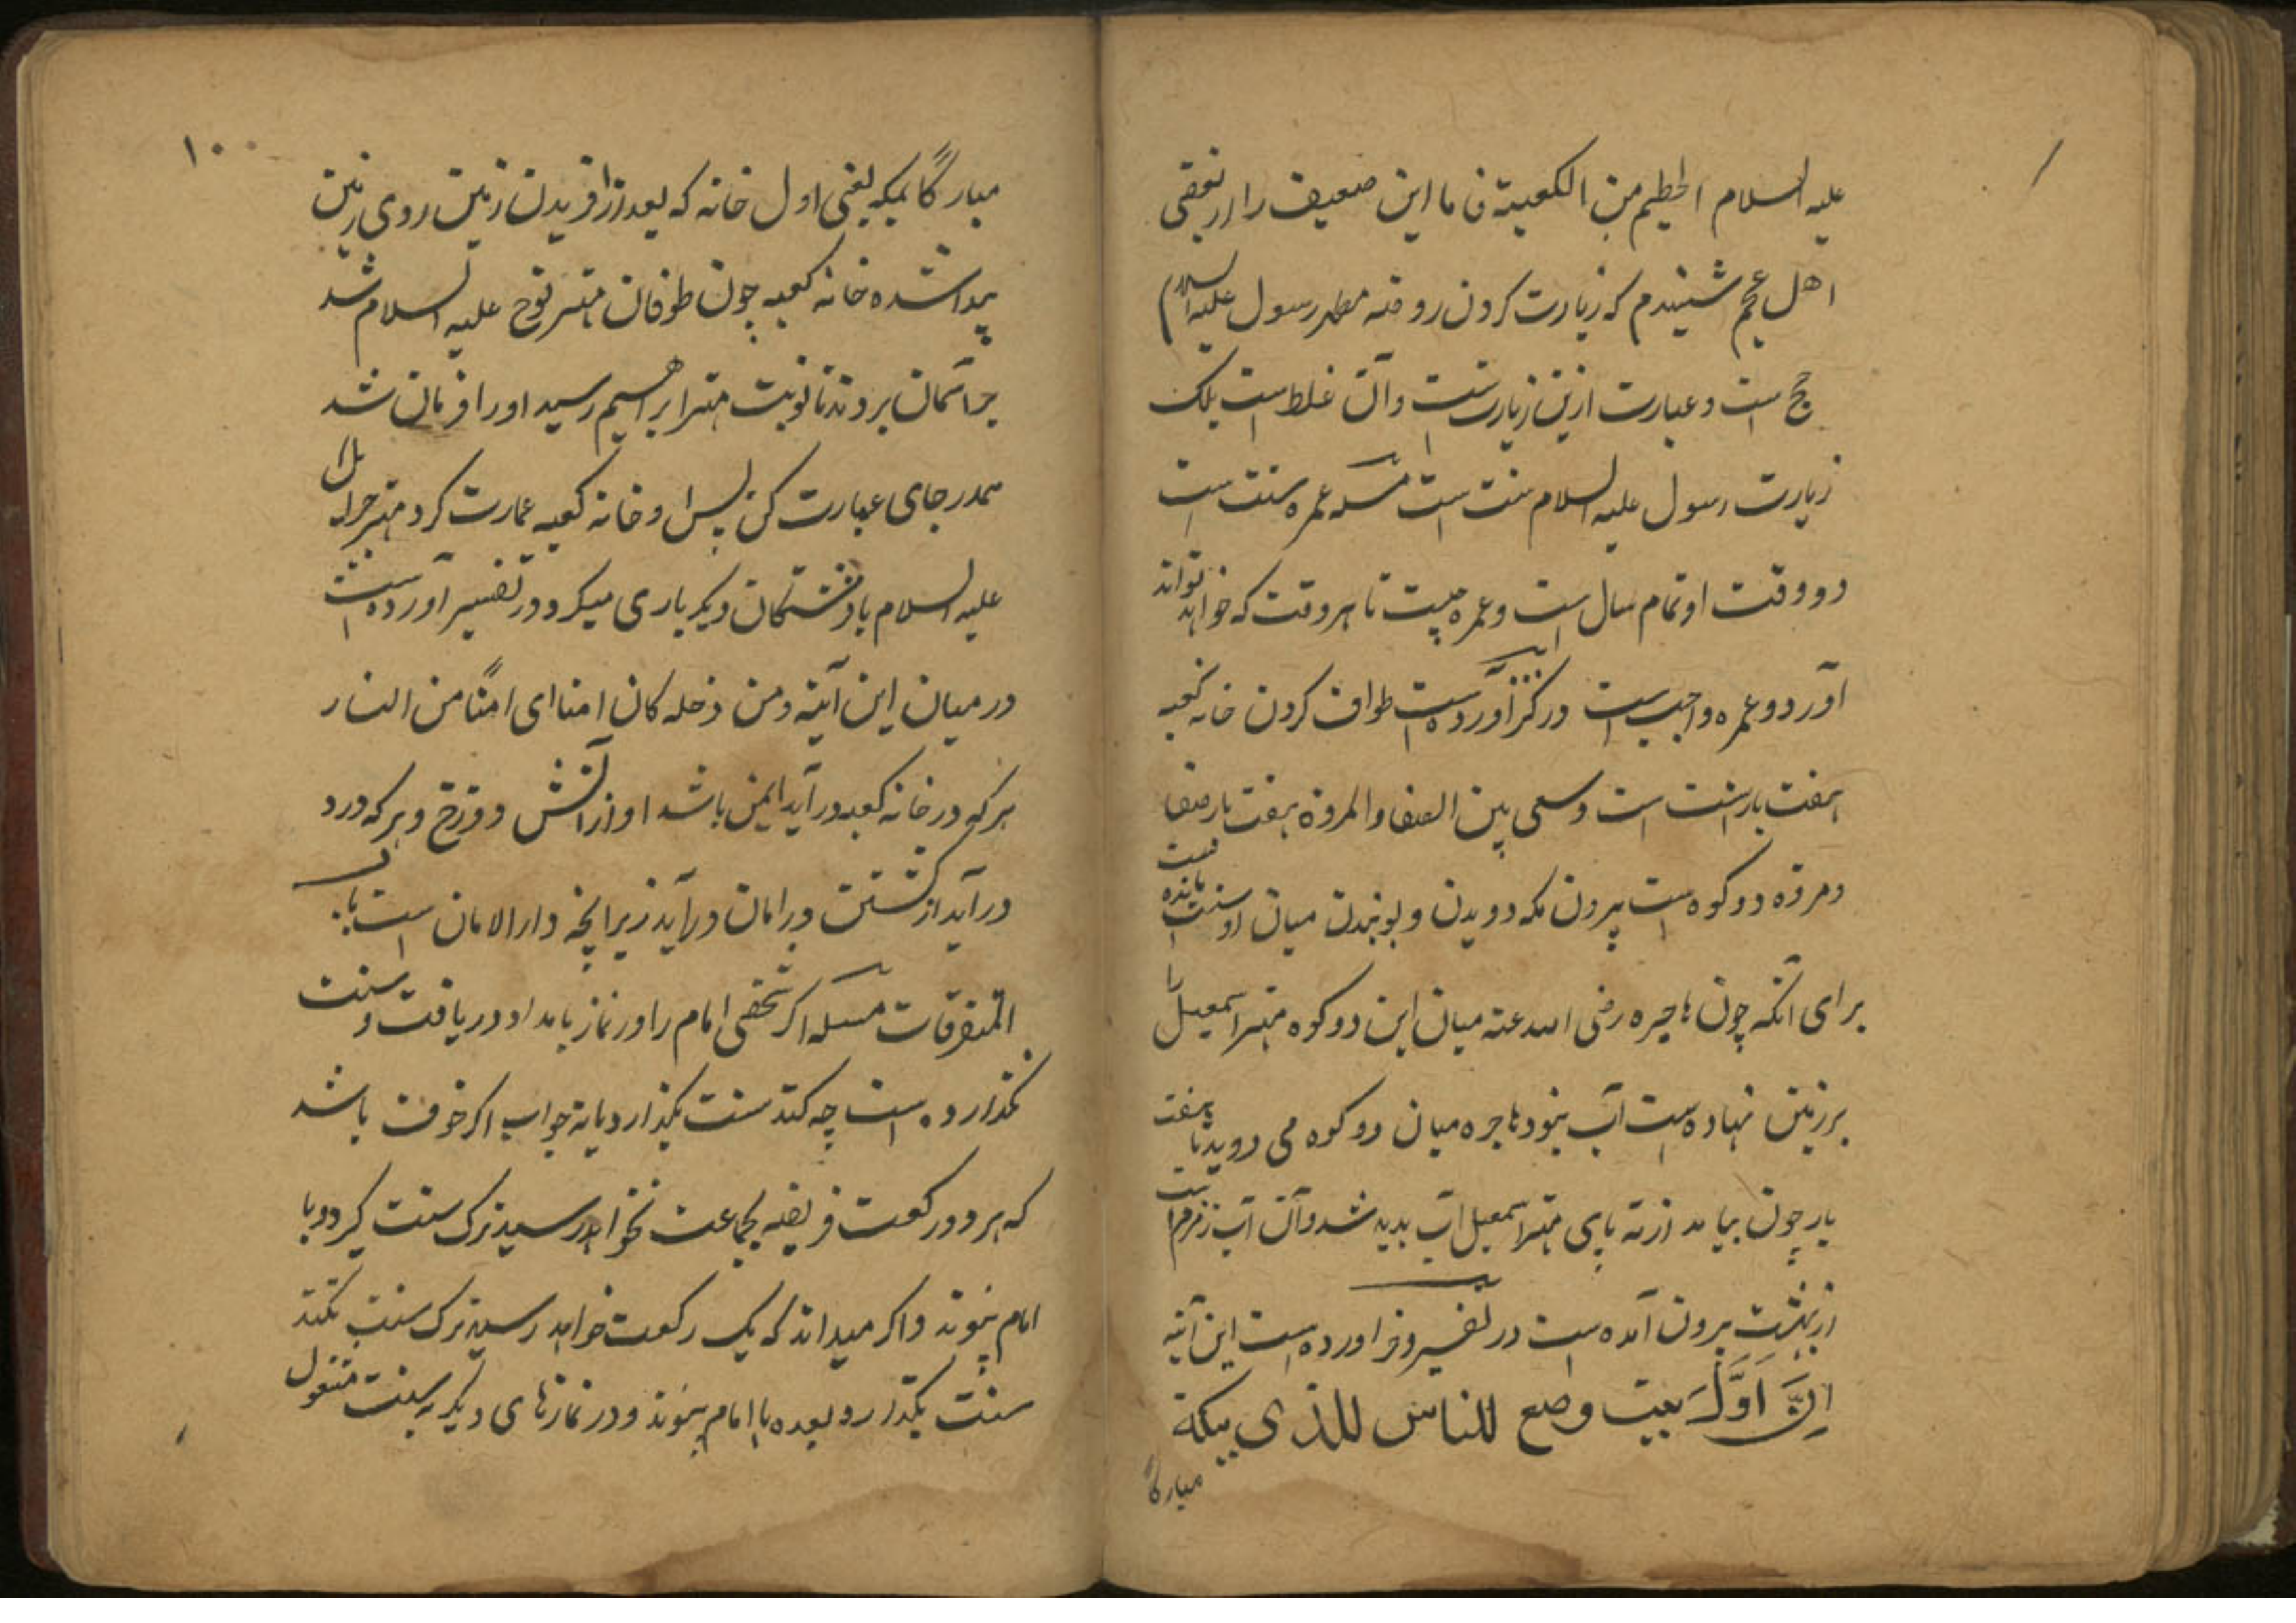 علیه السلام الحطیم من الکعبة فاما این ضعیف را از بعضی
اهل عجم شنیدم که زیارت کردن روضه مطهر رسول علیه السلام
حج است و عبارت ازین زیارتست و آن غلط است بلک
زیارت رسول علیه السلام سنت است مسله عمره سنت است
دو وقت او تمام سال است و عمره چیست تا هر وقت که خواهد تواند
آورد و عمره واجب است در کنز آورده است طواف کردن خانه کعبه
هفت بار سنت است و سعی بین الصفا والمروة هفت بار صفا
و مروه دو کوه است بیرون مکه دویدن و میان او سنت است
برای آنکه چون هاجره رضی الله عنه میان این دو کوه مهتر اسمعیل را
بر زمین نهاده است آب نبود هاجره میان دو کوه می دوید تا هفت
بار چون بیامد از ته پای مهتر اسمعیل آب پدید شد و آن آب زمزم است
از بهشت برون آمده است در تفسیر آورده است این آیة
اِنَّ اَوَّلَ بیت وضع للناس للذی ببکة
مبارکاً
۱۰۰
مبارکاً بمکه یعنی اول خانه که بعد از آفریدن زمین روی زمین
پیدا شده خانه کعبه چون طوفان مهتر نوح علیه السلام شد
بر آسمان بردند تا نوبت مهتر ابراهیم رسید او را فرمان شد
همدر جای عبارت کن پس او خانه کعبه عمارت کرد مهتر جبرائیل
علیه السلام با فرشتکان دیکر یاری میکرد و در تفسیر آورده است
در میان این آیة و من دخله کان امنا ای امنًا من النار
هر که در خانه کعبه در آید ایمن باشد او از آتش دوزخ و هر که درو
در آید از کشتن در امان در آید زیرا نچه دار الامان است باب
المتفرقات مسله اکر شخصی امام را در نماز بامداد دریافت و سنت
نکذارده است چه کند سنت بکذارد یا نه جواب اکر خوف باشد
که هر دو رکعت فریضه بجماعت نخواهد رسید ترک سنت کیرد و با
امام پیوندد و اکر میداند که یک رکعت خواهد رسید ترک سنت نکند
سنت بکذارد و بعده با امام پیوندد و در نمازهای دیکر به سنت مشغول